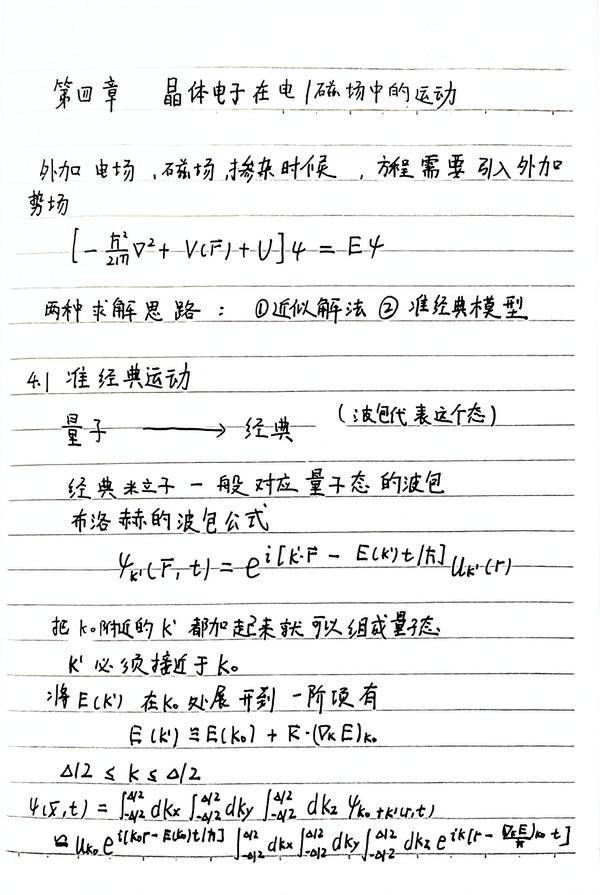 第四章 晶体电子在电/磁场中的运动
外加 电场,磁场,掺杂时候 ,方程需要引入外加
势场
[-ħ²/2m ∇² + V(r̄) + U]ψ = Eψ
两种求解思路:①近似解法 ② 准经典模型
4.1 准经典运动
量子 ⟶ 经典 (波包代表这个态)
经典粒子一般对应量子态的波包
布洛赫的波包公式
ψ_k'(r̄, t) = e^{i[k'·r̄ - E(k')t/ħ]} u_k'(r)
把 k₀附近的 k' 都加起来就可以组成量子态
k' 必须接近于 k₀
将 E(k') 在 k₀ 处展开到一阶项有
E(k') ≌ E(k₀) + k̄·(∇_k E)_k₀
Δ/2 ≤ k ≤ Δ/2
ψ(x̄,t) = ∫_{-Δ/2}^{Δ/2} dkx ∫_{-Δ/2}^{Δ/2} dky ∫_{-Δ/2}^{Δ/2} dkz ψ_{k₀+k'}(r,t)
≌ u_k₀ e^{i[k₀r - E(k₀)t/ħ]} ∫_{-Δ/2}^{Δ/2} dkx ∫_{-Δ/2}^{Δ/2} dky ∫_{-Δ/2}^{Δ/2} dkz e^{ik[r - (∇_k E/ħ)_{k₀} t]}